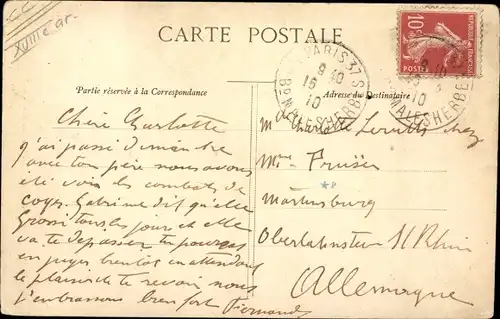 CC
XVIIIe ar.
CARTE POSTALE
Partie réservée à la Correspondance
Adresse du Destinataire
PARIS 37
9 40
15
10
Bd MALESHERBES
10c
POSTES
REPUBLIQUE FRANCAISE
Chère Charlotte
j'ai passé dimanche
avec ton père nous avons
été voir les combats de
coqs. Gabrielle dit qu'elle
Grossi tous les jours et elle
va te depasser tu pourras
en juger bientot en attendant
le plaisir de te revoir nous
t'embrassons bien fort Fernande
Melle Charlotte chez
Mme Prüser
Martinsburg
Oberlahnstein s/ Rhin
Allemagne